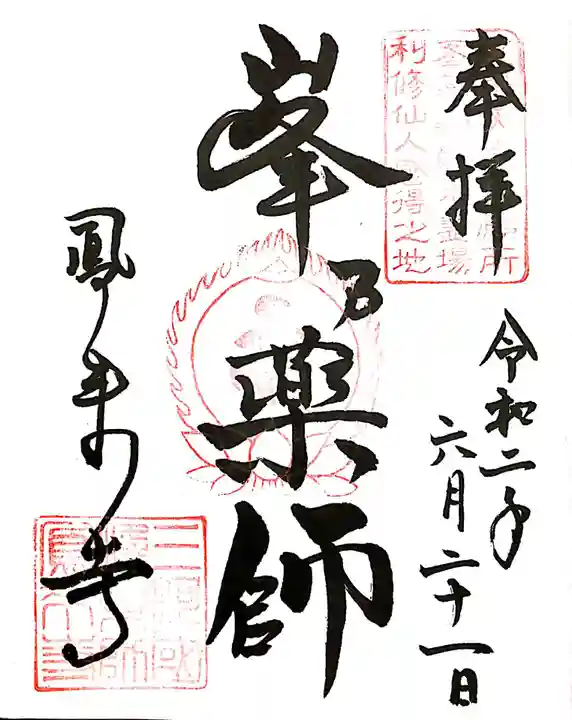 奉拝
令和二年
六月二十一日
峯乃薬師
鳳来寺
利修仙人
得之地
霊場
所
三河国